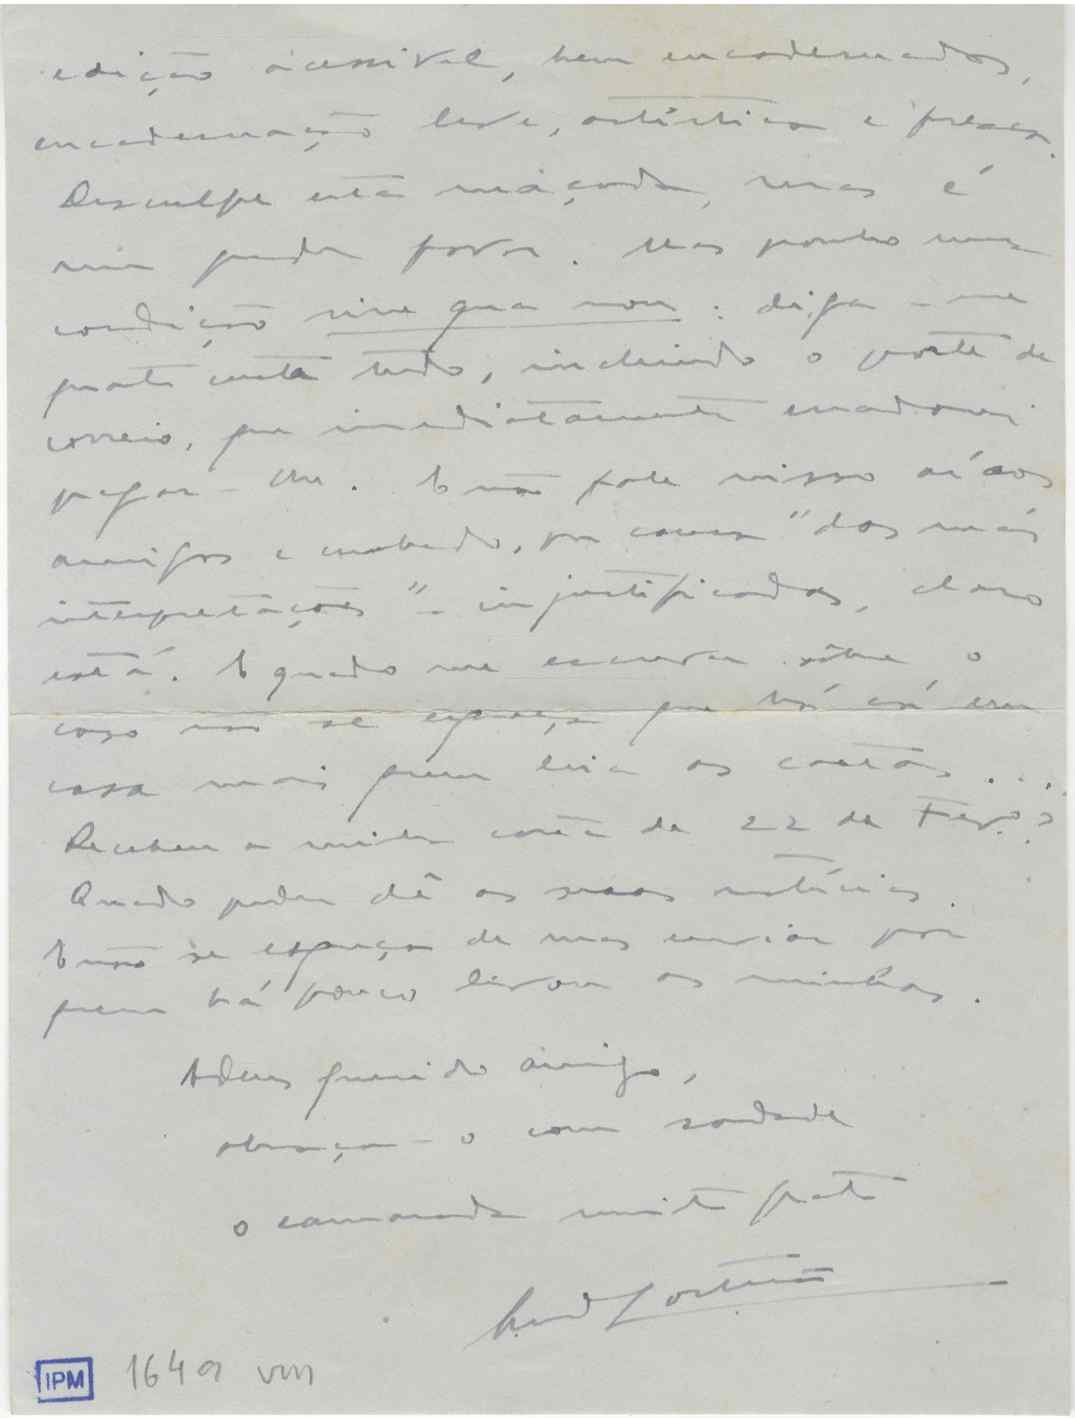 edição acessível, bem encadernados,
encadernação leve, artística e fresca.
Desculpe esta maçada, mas é
um grande favor. Mas ponho uma
condição sine qua non: diga-me
quanto custa tudo, incluindo o porte de
correio, que imediatamente mandarei
pagar-lhe. E não fale nisso aí aos
amigos e, por causa "das más
interpretações" - injustificadas, claro
está. E quando me escrever sôbre o
caso não se esqueça que há cá em
casa mais quem leia as cartas...
Recebeu a minha carta de 22 de Fevº.?
Quando puder dê as suas notícias.
E não se esqueça de mas enviar por
quem há pouco levou as minhas.
Adeus querido amigo,
abraça-o com saudade
o camarada muito grato
IPM 1649 vm